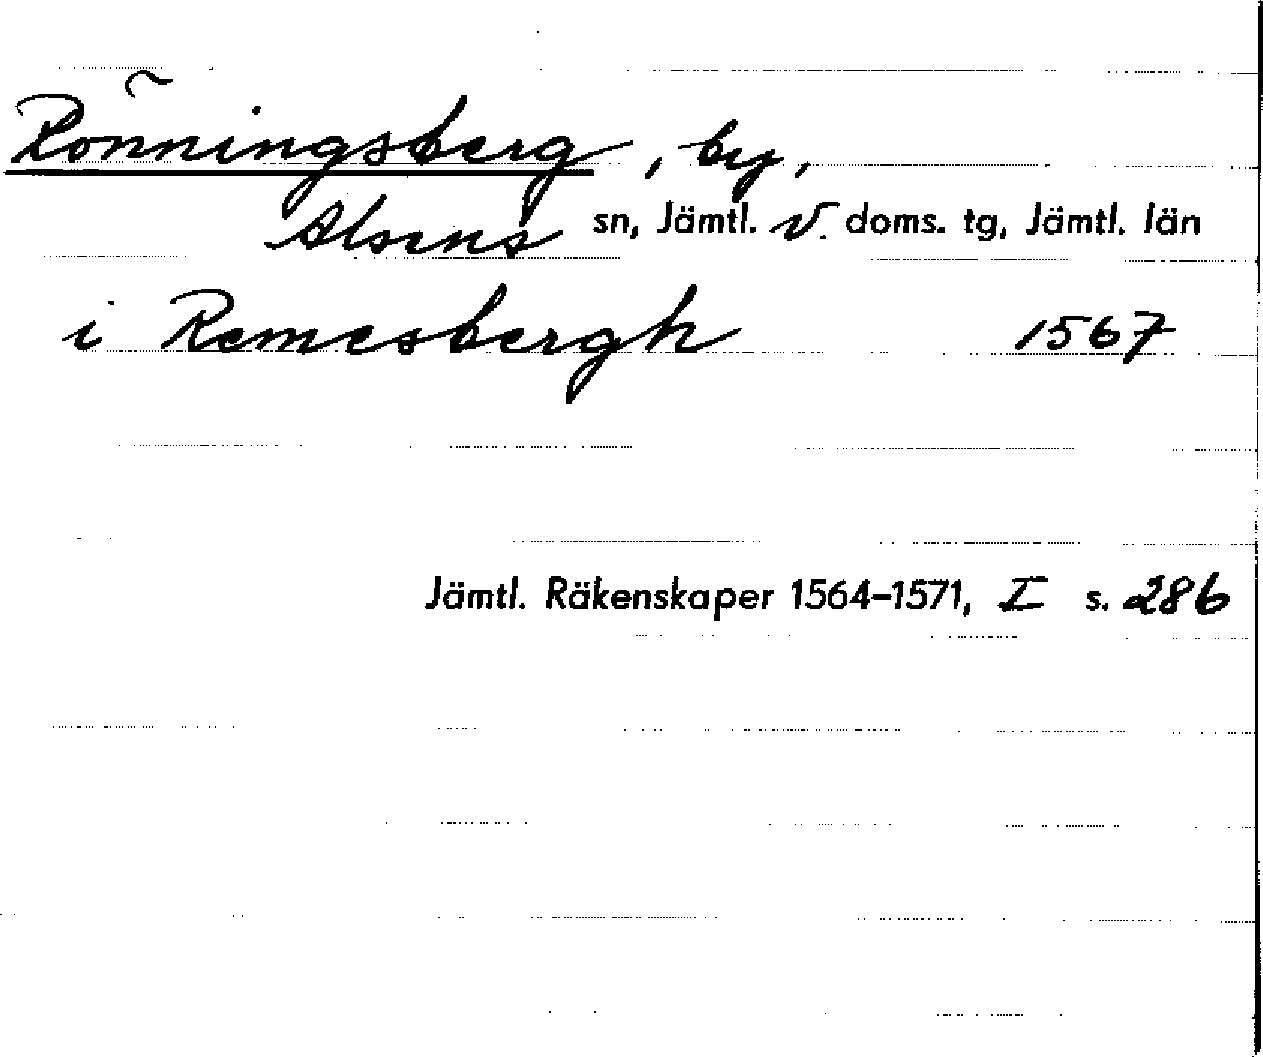 Rönningsberg, by,
Alsens sn, Jämtl. v. doms. tg, Jämtl. län
i Remesbergh 1567
Jämtl. Räkenskaper 1564-1571, I s. 286